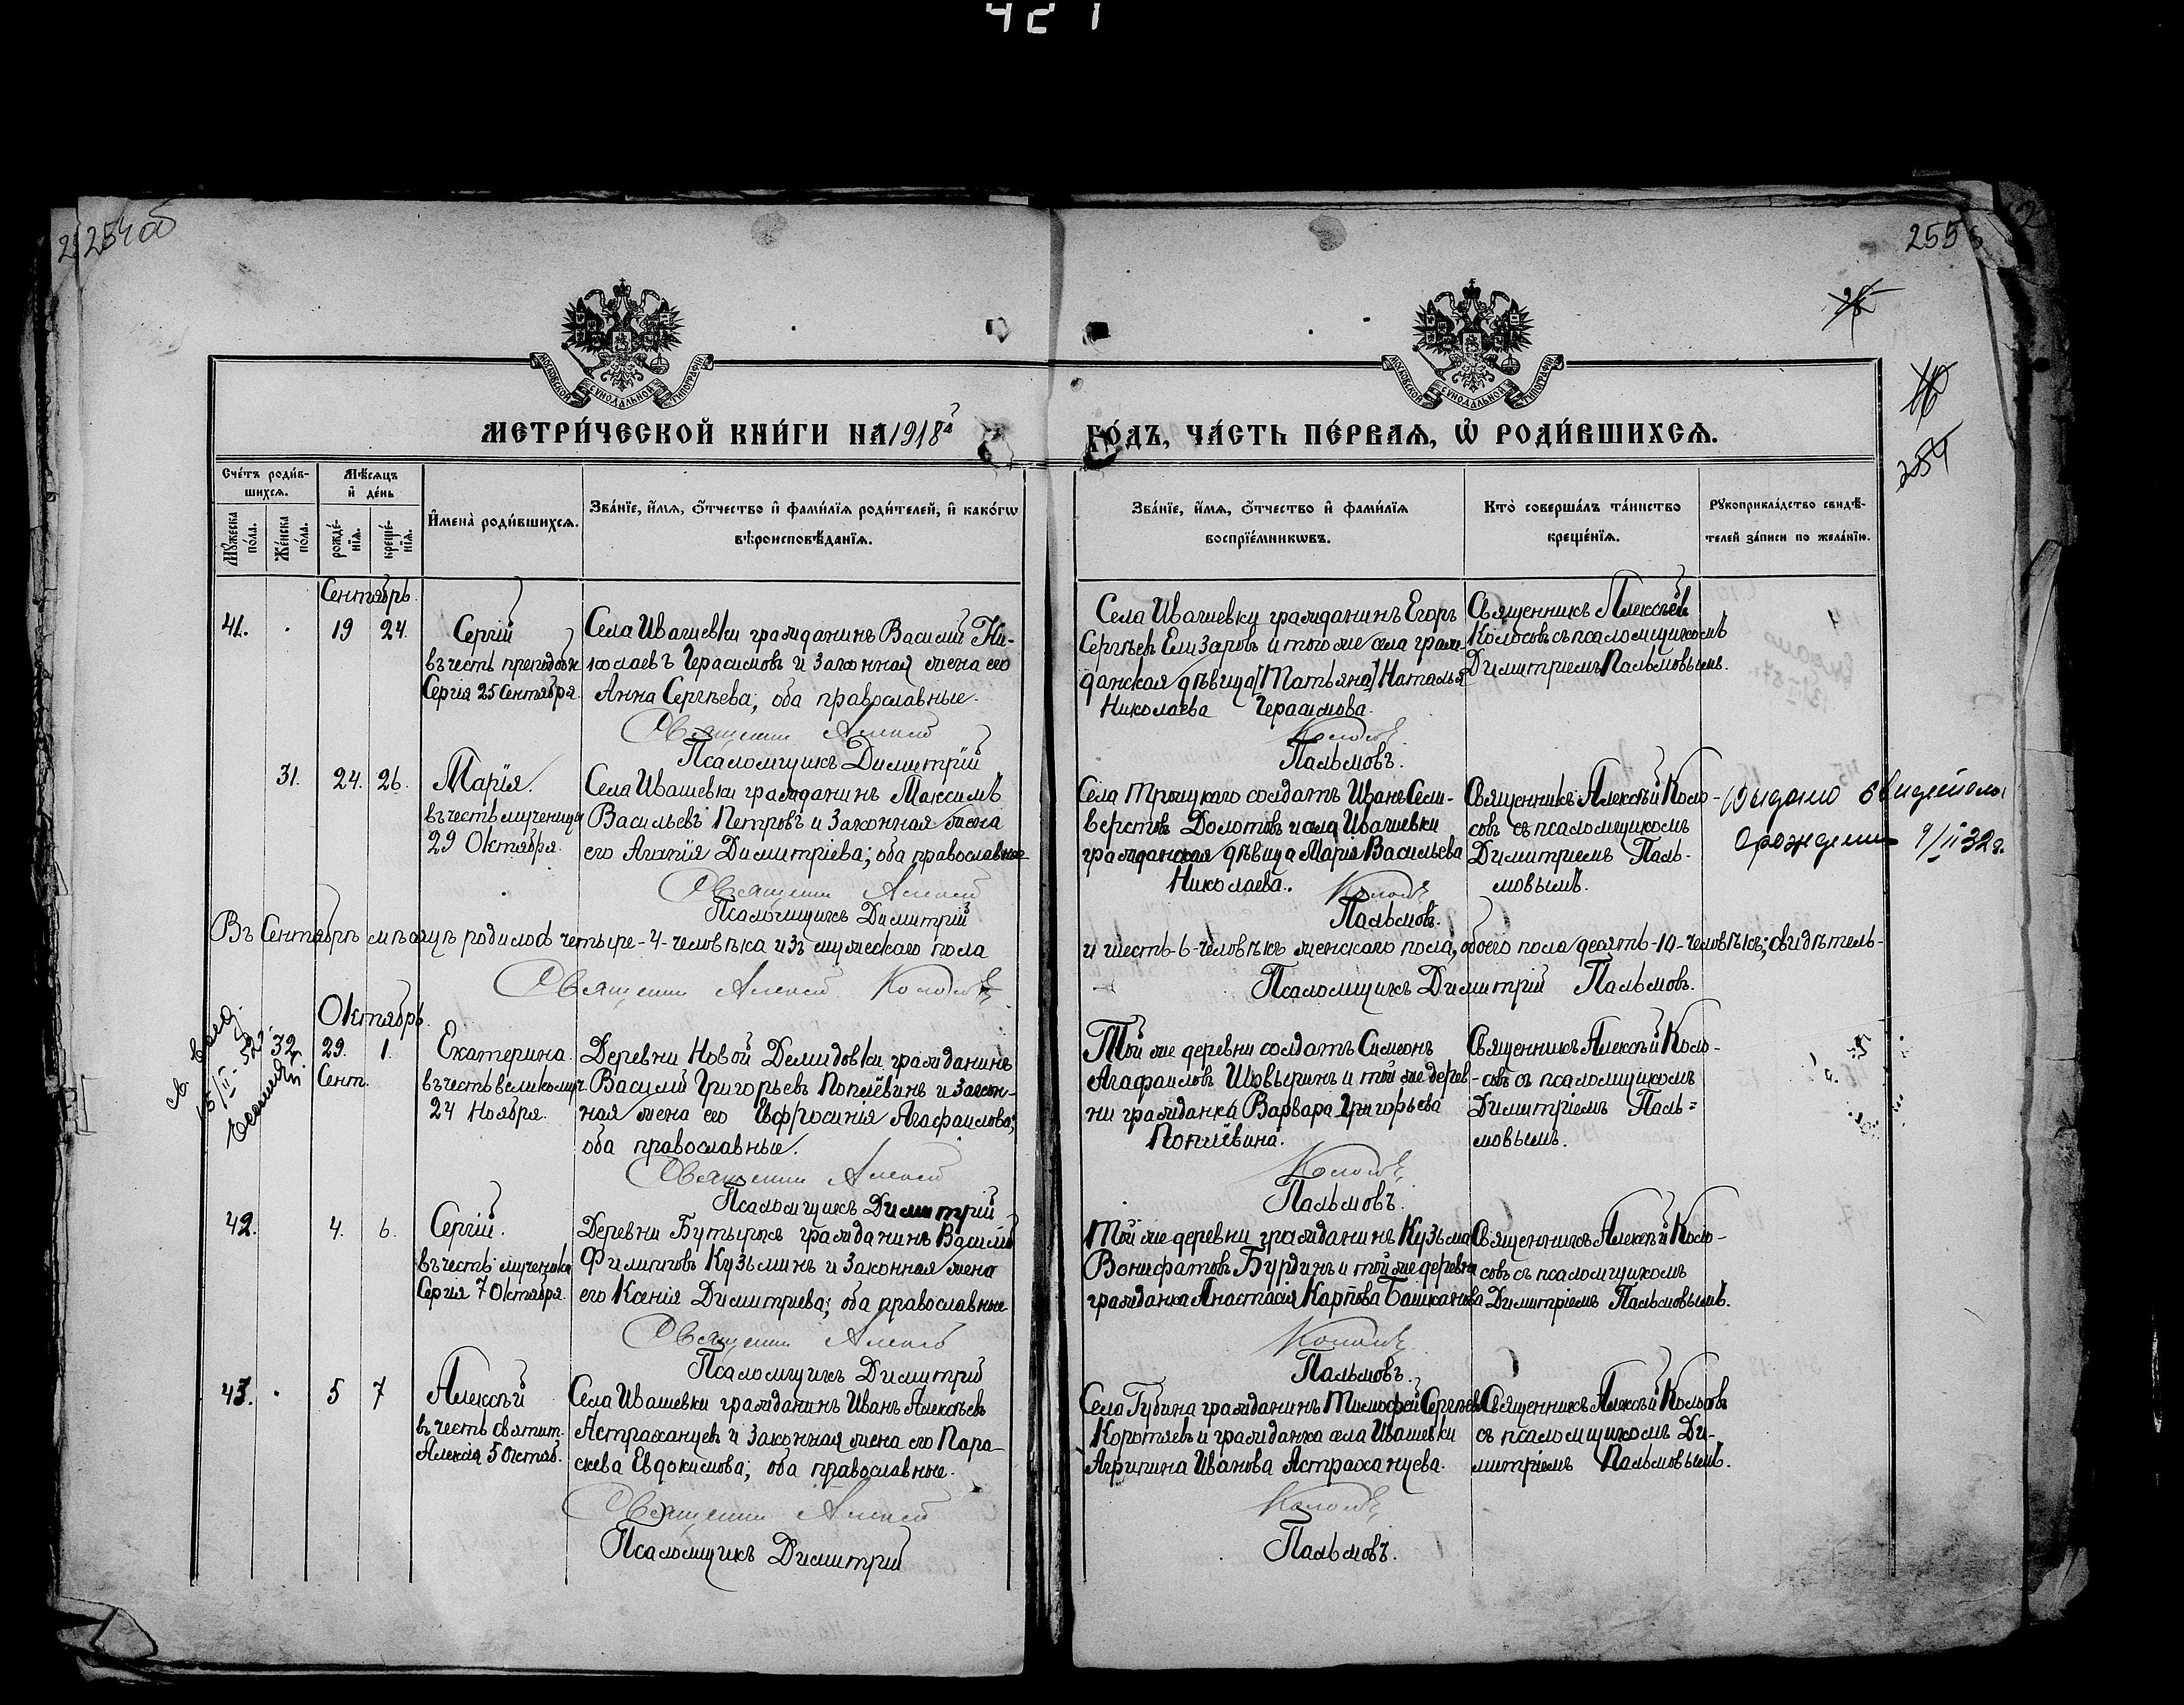 421
254об
255
254
МОСКОВСКОЙ СѴНОДАЛЬНОЙ ТИПОГРАФІИ
МОСКОВСКОЙ СѴНОДАЛЬНОЙ ТИПОГРАФІИ
МЕТРИ́ЧЕСКОЙ КНИ́ГИ НА 1918й
ГО́ДЪ, ЧА́СТЬ ПЕ́РВАѦ, Ѽ РОДИ́ВШИХСѦ.
Сче́тъ роди́в-
шихсѧ.
Мꙋ́жеска по́ла.
Же́нска по́ла.
Мѣ́сѧцъ
и҆ де́нь
рожде́-
нїѧ.
креще́-
нїѧ.
И҆мена̀ роди́вшихсѧ.
Зва́нїе, и҆́мѧ, ѻ҆́тчество и҆ фами́лїѧ роди́телей, и҆ како́гѡ
вѣроисповѣ́данїѧ.
Зва́нїе, и҆́мѧ, ѻ҆́тчество и҆ фами́лїѧ
воспрїе́мникѡвъ.
Кто̀ соверша́лъ та́инство
креще́нїѧ.
Рꙋкоприкла́дство свидѣ́-
телей за́писи по жела́нїю.
Сентябрь.
41.
19 24.
Сергій
въ честь преподобн.
Сергія 25 Сентября.
Села Ивашевки гражданинъ Василій Ни-
колаевъ Герасимовъ и законная жена его
Анна Сергѣева; оба православные.
Священникъ Алексѣй
Псаломщикъ Димитрій
Села Ивашевки гражданинъ Егоръ
Сергѣевъ Елизаровъ и того же села граж-
данская дѣвица [Татьяна] Наталья
Николаева Герасимова.
Колосовъ
Пальмовъ.
Священникъ Алексѣй
Колосовъ съ псаломщикомъ
Димитріемъ Пальмовымъ.
31.
24. 26.
Марія.
въ честь мученицы
29 Октября.
Села Ивашевки гражданинъ Максимъ
Васильевъ Петровъ и законная жена
его Агапія Димитріева; оба православные
Священникъ Алексѣй
Псаломщикъ Димитрій
Села Троицкаго солдатъ Иванъ Сели-
верстовъ Долотовъ и села Ивашевки
гражданская дѣвица Марія Васильева
Николаева.
Колосовъ
Пальмовъ.
Священникъ Алексѣй Коло-
совъ съ псаломщикомъ
Димитріемъ Паль-
мовымъ.
Выдано свидетель
о рождении 9/II 32 г.
Въ Сентябрѣ мѣсяцѣ родилось четыре-4-человѣка изъ мужескаго пола
и шесть-6-человѣкъ женскаго пола, обоего пола десять-10-человѣкъ; свидѣтель-
Священникъ Алексѣй Колосовъ
Псаломщикъ Димитрій Пальмовъ.
Октябрь.
32
29. 1.
Сент.
Екатерина.
въ честь великомуч.
24 Ноября.
Деревни Новой Демидовки гражданинъ
Василій Григорьевъ Поплёвинъ и закон-
ная жена его Ефросинія Агафаилова;
оба православные.
Священникъ Алексѣй
Псаломщикъ Димитрій
Той же деревни солдатъ Симеонъ
Агафаиловъ Шовыринъ и той же дерев-
ни гражданка Варвара Григорьева
Поплёвина.
Колосовъ
Пальмовъ.
Священникъ Алексѣй Коло-
совъ съ псаломщикомъ
Димитріемъ Паль=
мовымъ.
42.
4. 6.
Сергій.
въ честь мученика
Сергія 7 Октября.
Деревни Бутырокъ гражданинъ Василій
Филипповъ Кузьминъ и законная жена
его Ксенія Димитріева; оба православные
Священникъ Алексѣй
Псаломщикъ Димитрій
Той же деревни гражданинъ Кузьма
Вонифатовъ Бурдинъ и той же деревни
гражданка Анастасія Карпова Башканова
Колосовъ
Пальмовъ.
Священникъ Алексѣй Коло-
совъ съ псаломщикомъ
Димитріемъ Пальмовымъ.
43.
5 7
Алексѣй
въ честь святит.
Алексія 5 Октяб.
Села Ивашевки гражданинъ Иванъ Алексѣевъ
Астраханцевъ и законная жена его Пара-
скева Евдокимова; оба православные.
Священникъ Алексѣй
Псаломщикъ Димитрій
Села Губина гражданинъ Тимофей Сергѣевъ
Коротяевъ и гражданка села Ивашевки
Агрипина Иванова Астраханцева.
Колосовъ
Пальмовъ.
Священникъ Алексѣй Колосовъ
съ псаломщикомъ Ди-
митріемъ Пальмовымъ.